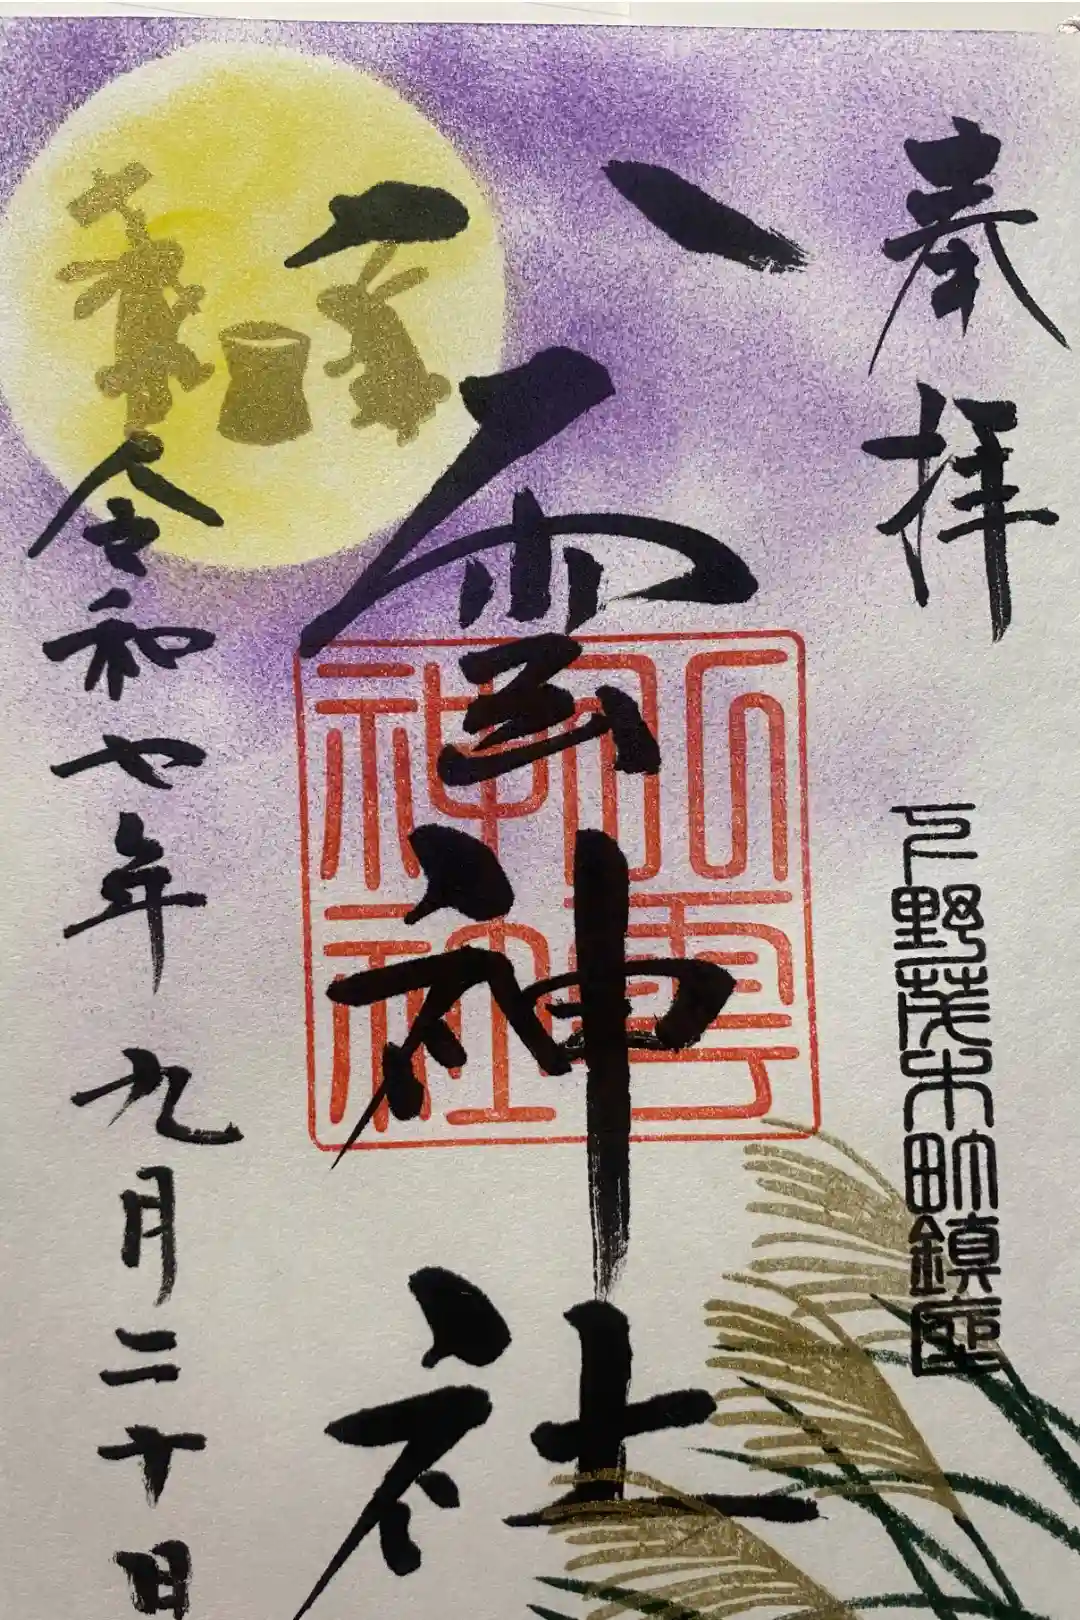 奉拝
下野茂木町鎮座
八雲神社
八雲
神社
令和七年九月二十日